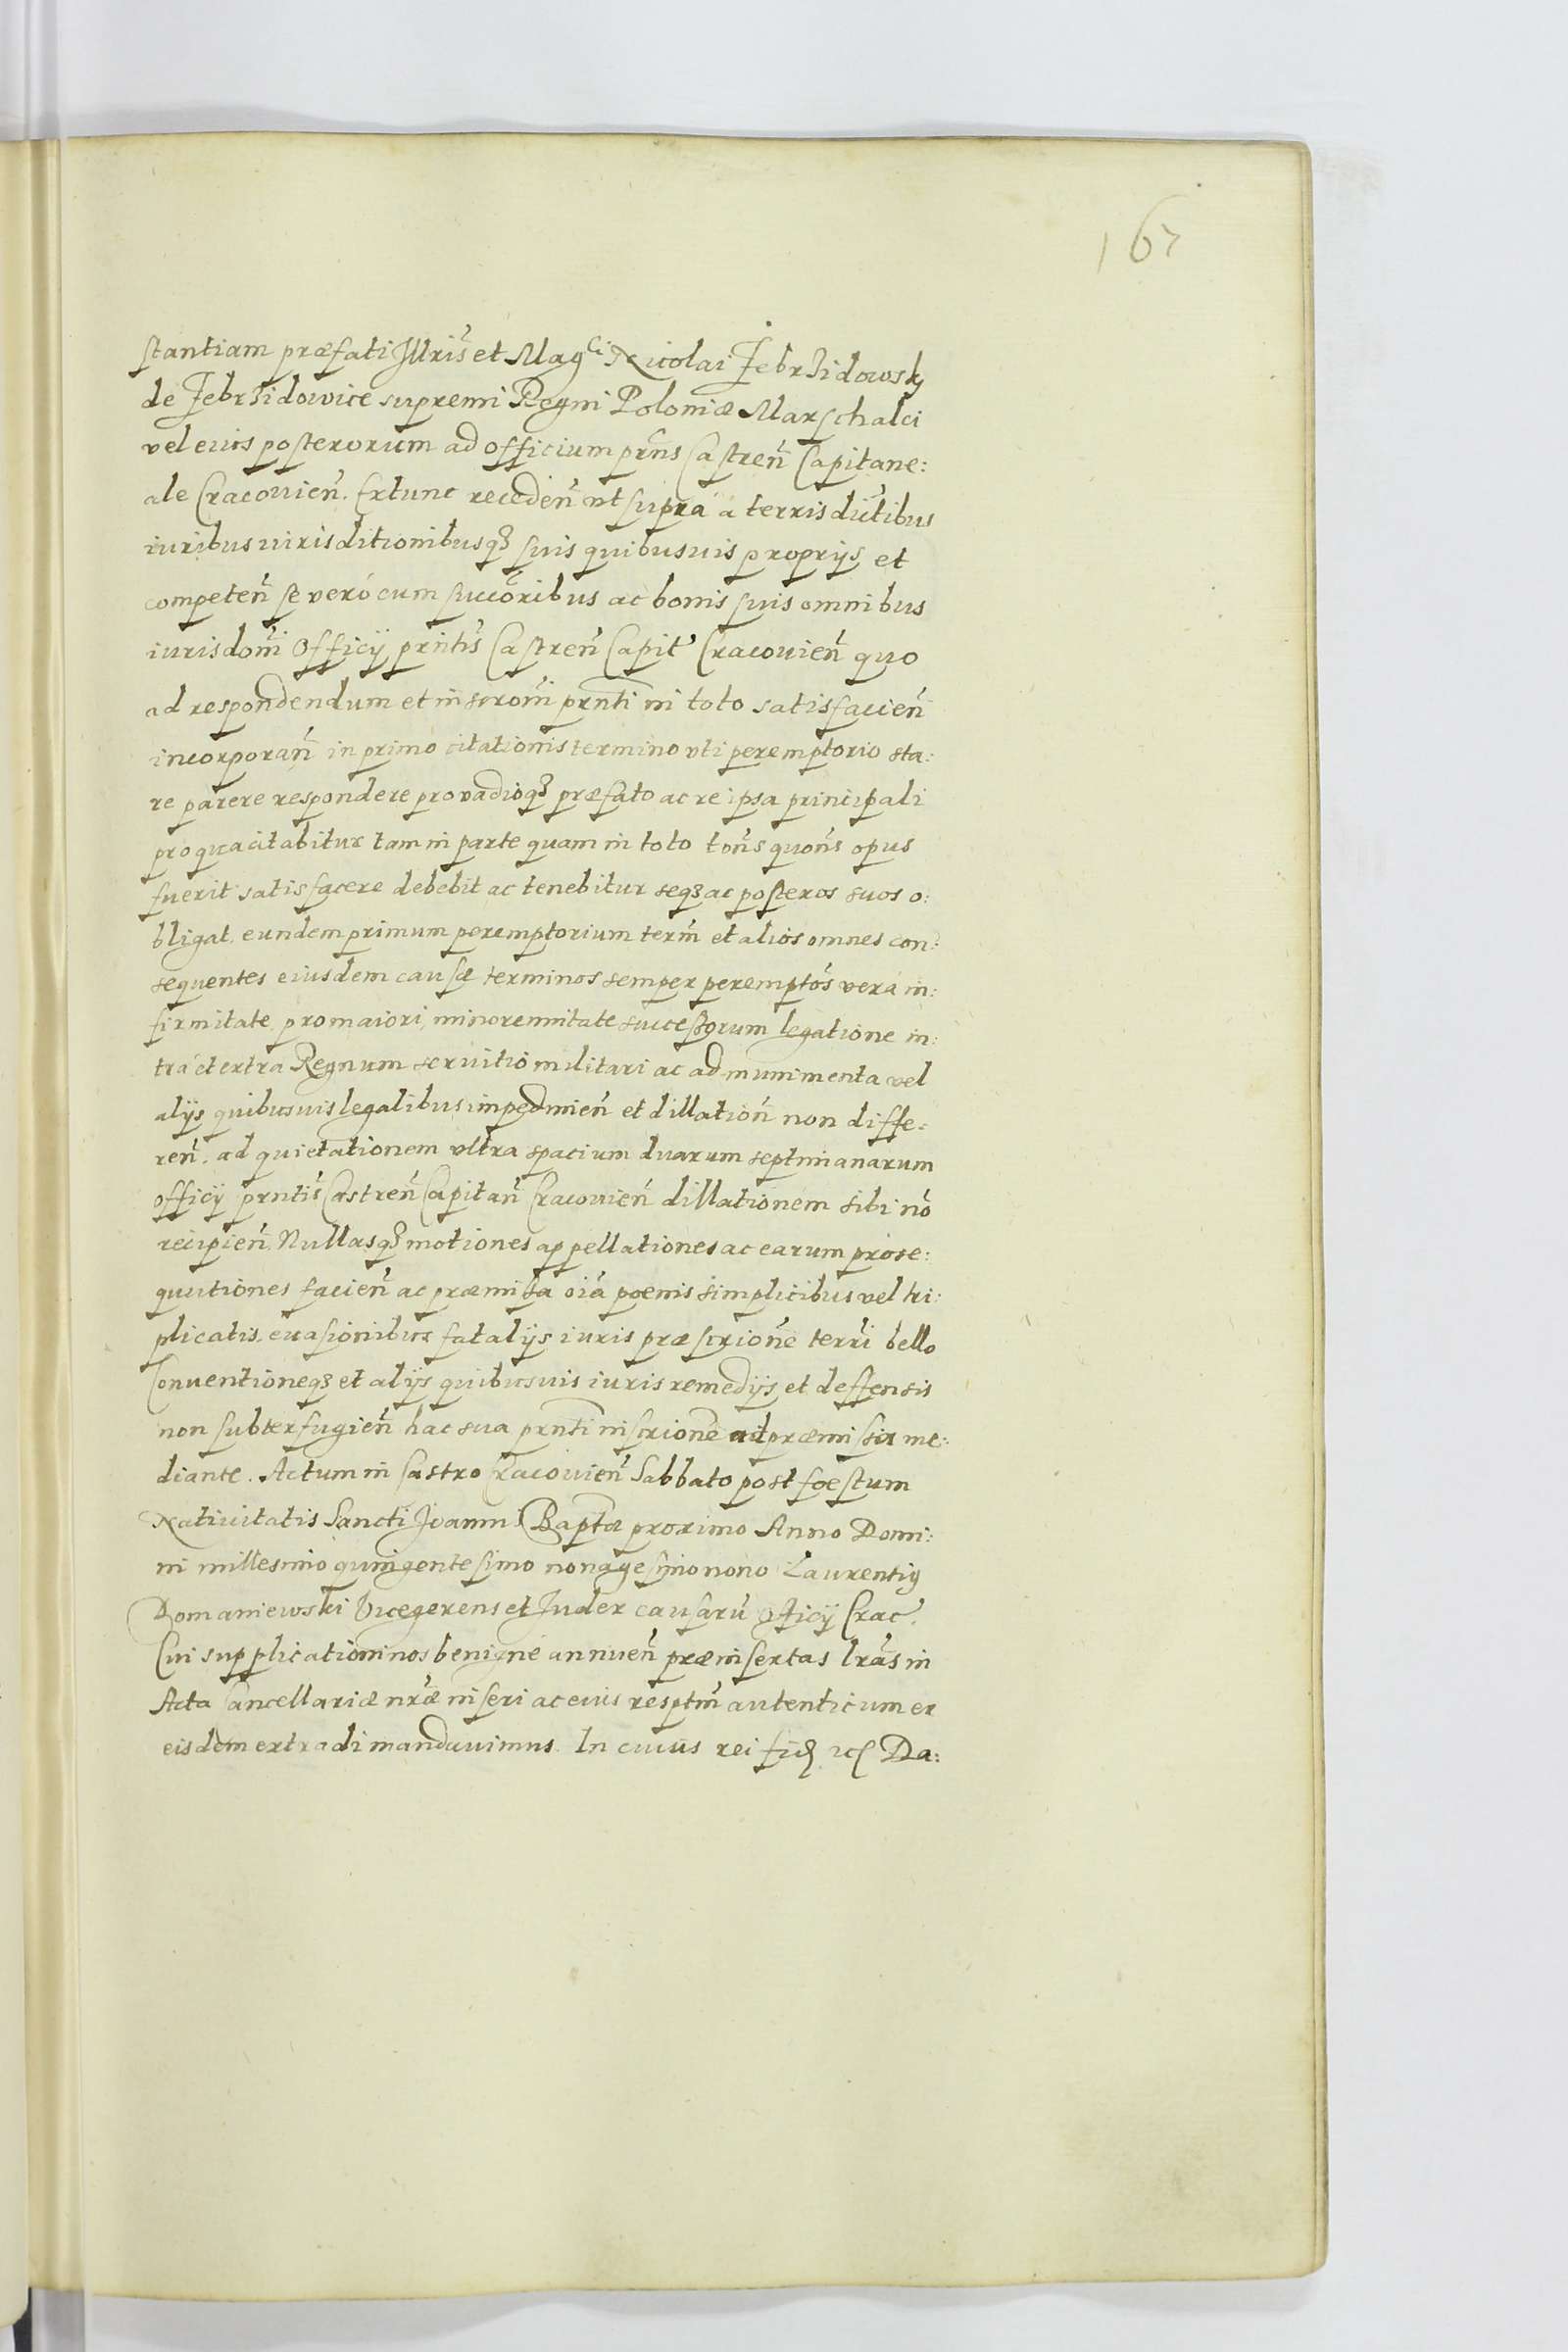 167
stantiam præfati Illris̃ et Mag͠ci Nicolai Zebrzidowsky
de Zebrzidowice supremi Regni Poloniæ Marschalci
vel eius posterorum ad officium prñs Castreñ Capitane:
ale Cracovieñ. Extunc recedeñ ut supra à terris districtibus
iuribus iurisditionibusq3 suis quibusuis proprijs et
competeñ se verò cum succõribus ac bonis suis omnibus
iurisdom̃ Officij prñtis Castreñ Capit̃ Cracovieñ quo
ad respondendum et inscrom̃ prñti in toto satisfacieñ
incorporañ in primo citationis termino uti peremptorio sta:
re parere respondere pro vadioq3 præfato ac re ipsa principali
pro qua citabitur tam in parte quam in toto toñs quoñs opus
fuerit satisfacere debebit ac tenebitur seq3 ac posteros suos o:
bligat. eundem primum peremptorium term̃ et alios omnes con:
sequentes eiusdem causæ terminos semper peremptõs vera in:
firmitate pro maiori, minorennitate successorum legatione in:
tra et extra Regnum servitio militari ac ad munimenta vel
alijs quibusuis legalibus impedmieñ et dillatioñ non diffe:
reñ. ad quietationem ultra spacium duarum septimanarum
officij prñtis Castreñ Capitañ Cracovieñ dillationem sibi nõ
recipieñ. Nullasq3 motiones appellationes ac earum prose:
quutiones facieñ ac præmissa oĩa poenis simplicibus vel tri:
plicatis. evasionibus fatalijs iuris præscrione terr̃i bello
Conventioneq3 et alijs quibusuis iuris remedijs et deffensis
non subterfugieñ hac sua prñti inscrione ad præmissa me:
diante. Actum in Castro Cracovieñ Sabbato post foestum
Nativitatis Sancti Joannis Baptæ proximo Anno Domi:
ni millesimo quingentesimo nonagesimo nono Laurentiy
Domaniewski Vicegerens et Judex causarũ Officij Crac̃.
Cui supplicationi nos benigne annueñ præinsertas lrãs in
Acta Cancellariæ nr̃æ inseri ac eius resptm̃ autenticum ex
eisdem extradi mandavimus. In cuius rei fid. etc Da: